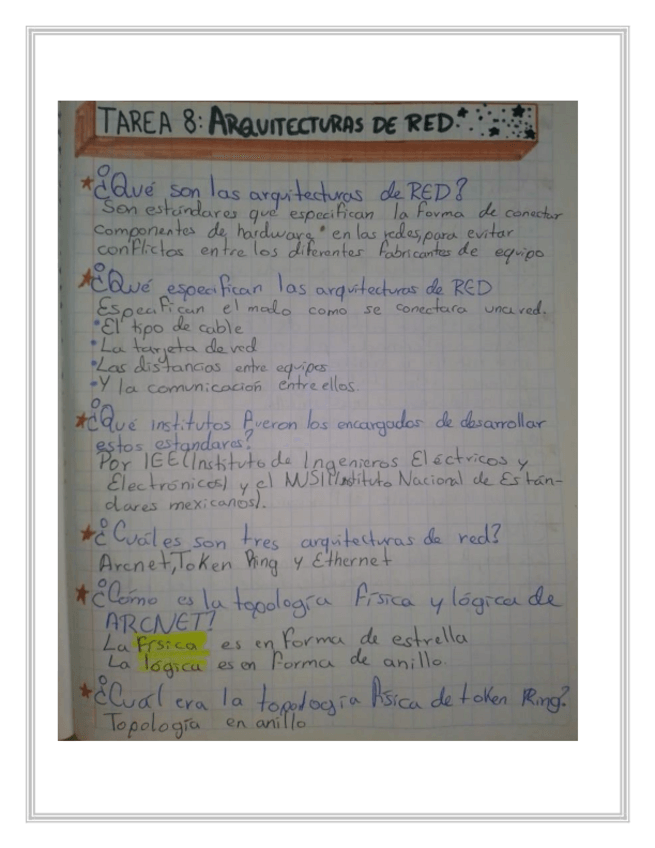 TAREA 8: ARQUITECTURAS DE RED.
¿Qué son las arquitecturas de RED?
Son estándares que especifican la forma de conectar
componentes de hardware en las redes, para evitar
conflictos entre los diferentes fabricantes de equipo
¿Qué especifican las arquitecturas de RED
Especifican el modo como se conectara una red.
•El tipo de cable
•La tarjeta de red
•Las distancias entre equipos
•Y la comunicación entre ellos.
¿Qué institutos fueron los encargados de desarrollar
estos estandares?
Por IEE (Instituto de Ingenieros Eléctricos y
Electrónicos) y el (Instituto Nacional de Están-
dares mexicanos).
¿Cuáles son tres arquitecturas de red?
Arcnet, Token Ring y Ethernet
¿Cómo es la topología física y lógica de
ARCNET?
La física es en forma de estrella
La lógica es en forma de anillo.
¿Cuál era la topología física de token Ring?
Topología en anillo